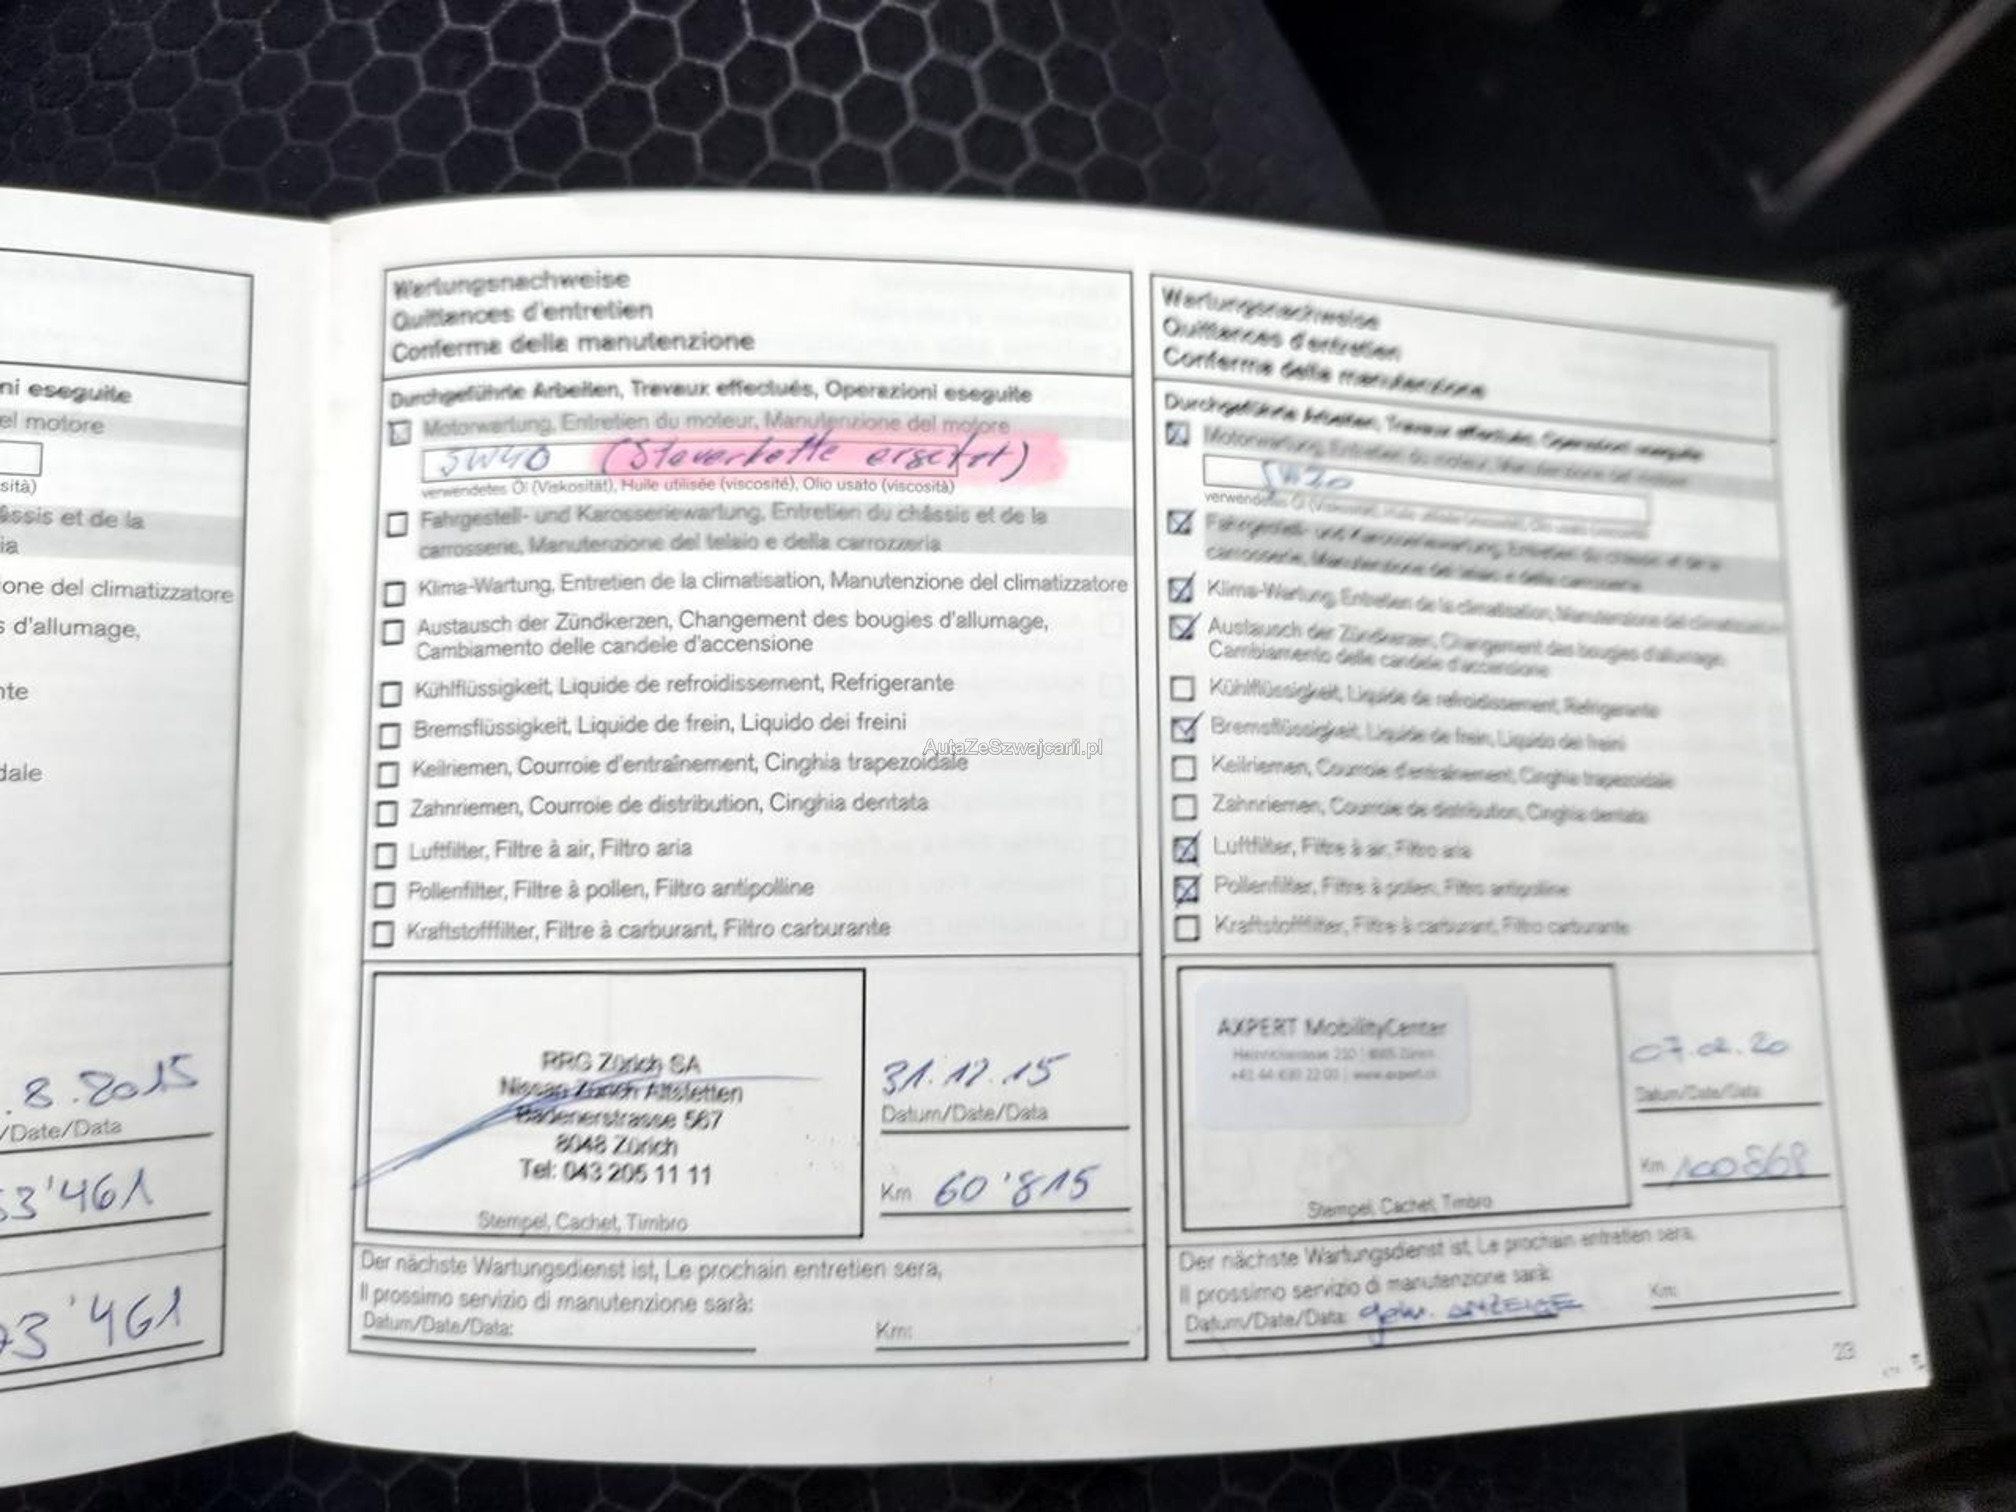 ni eseguite
el motore
sità)
ssis et de la
ia
one del climatizzatore
s d'allumage,
nte
dale
.8.2015
/Date/Data
3'461
3'461
Wartungsnachweise
Quittances d'entretien
Conferma della manutenzione
Durchgeführte Arbeiten, Travaux effectués, Operazioni eseguite
Motorwartung, Entretien du moteur, Manutenzione del motore
5W40 (Steuerkette ersetzt)
verwendetes Öl (Viskosität), Huile utilisée (viscosité), Olio usato (viscosità)
Fahrgestell- und Karosseriewartung, Entretien du châssis et de la
carrosserie, Manutenzione del telaio e della carrozzeria
Klima-Wartung, Entretien de la climatisation, Manutenzione del climatizzatore
Austausch der Zündkerzen, Changement des bougies d'allumage,
Cambiamento delle candele d'accensione
Kühlflüssigkeit, Liquide de refroidissement, Refrigerante
Bremsflüssigkeit, Liquide de frein, Liquido dei freini
Keilriemen, Courroie d'entraînement, Cinghia trapezoidale
Zahnriemen, Courroie de distribution, Cinghia dentata
Luftfilter, Filtre à air, Filtro aria
Pollenfilter, Filtre à pollen, Filtro antipolline
Kraftstofffilter, Filtre à carburant, Filtro carburante
RRG Zürich SA
Nissan Zürich Altstetten
Badenerstrasse 567
8048 Zürich
Tel: 043 205 11 11
Stempel, Cachet, Timbro
31.12.15
Datum/Date/Data
Km 60'815
Der nächste Wartungsdienst ist, Le prochain entretien sera,
Il prossimo servizio di manutenzione sarà:
Datum/Date/Data:
Km:
AutaZeSzwajcarii.pl
Wartungsnachweise
Quittances d'entretien
Conferma della manutenzione
Durchgeführte Arbeiten, Travaux effectués, Operazioni eseguite
Motorwartung, Entretien du moteur, Manutenzione del motore
verwendetes Öl (Viskosität), Huile utilisée (viscosité), Olio usato (viscosità)
Fahrgestell- und Karosseriewartung, Entretien du châssis et de la
carrosserie, Manutenzione del telaio e della carrozzeria
Klima-Wartung, Entretien de la climatisation, Manutenzione del climatizzatore
Austausch der Zündkerzen, Changement des bougies d'allumage,
Cambiamento delle candele d'accensione
Kühlflüssigkeit, Liquide de refroidissement, Refrigerante
Bremsflüssigkeit, Liquide de frein, Liquido dei freini
Keilriemen, Courroie d'entraînement, Cinghia trapezoidale
Zahnriemen, Courroie de distribution, Cinghia dentata
Luftfilter, Filtre à air, Filtro aria
Pollenfilter, Filtre à pollen, Filtro antipolline
Kraftstofffilter, Filtre à carburant, Filtro carburante
AXPERT MobilityCenter
Zürich
+41 44 630 22 00 | www.axpert.ch
Stempel, Cachet, Timbro
07.02.20
Datum/Date/Data
Km 100868
Der nächste Wartungsdienst ist, Le prochain entretien sera,
Il prossimo servizio di manutenzione sarà:
Datum/Date/Data: gem. ANZEIGE
Km:
23